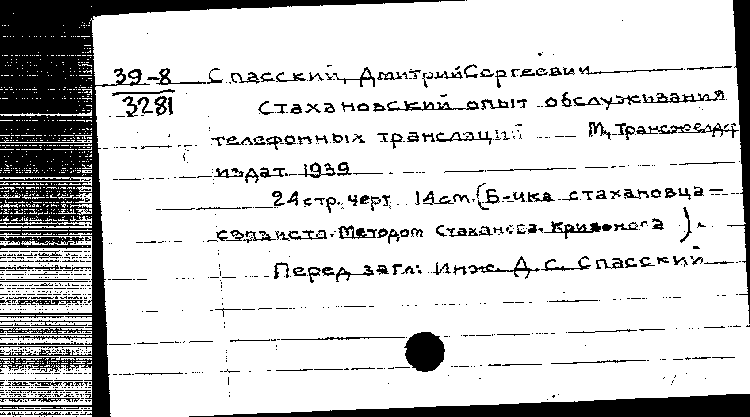 39-8 Спасский, Дмитрий Сергеевич
3281 Стахановский опыт обслуживания
телефонных трансляций — М, Трансжелдор
издат 1939
24 стр. черт 14 см. (Б-чка стахановца-
связиста. Методом Стаханова-Кривоноса).
Перед загл: Инж. Д. С. Спасский